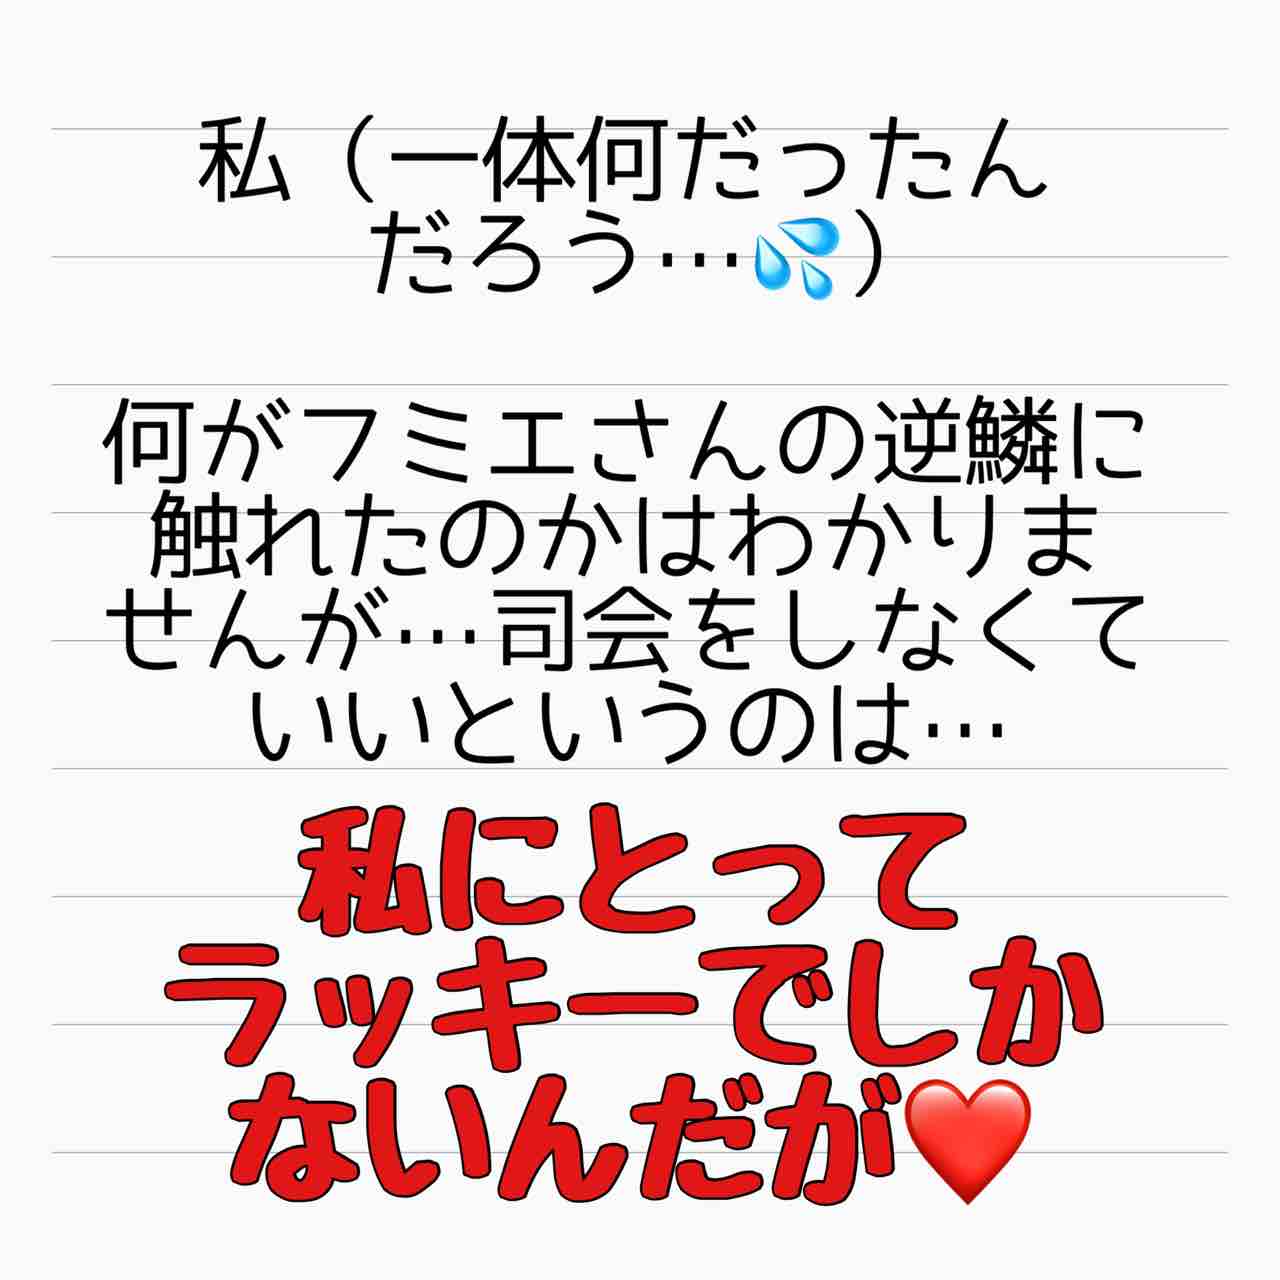 私（一体何だったん
だろう…💦）
何がフミエさんの逆鱗に
触れたのかはわかりま
せんが…司会をしなくて
いいというのは…
私にとって
ラッキーでしか
ないんだが❤️